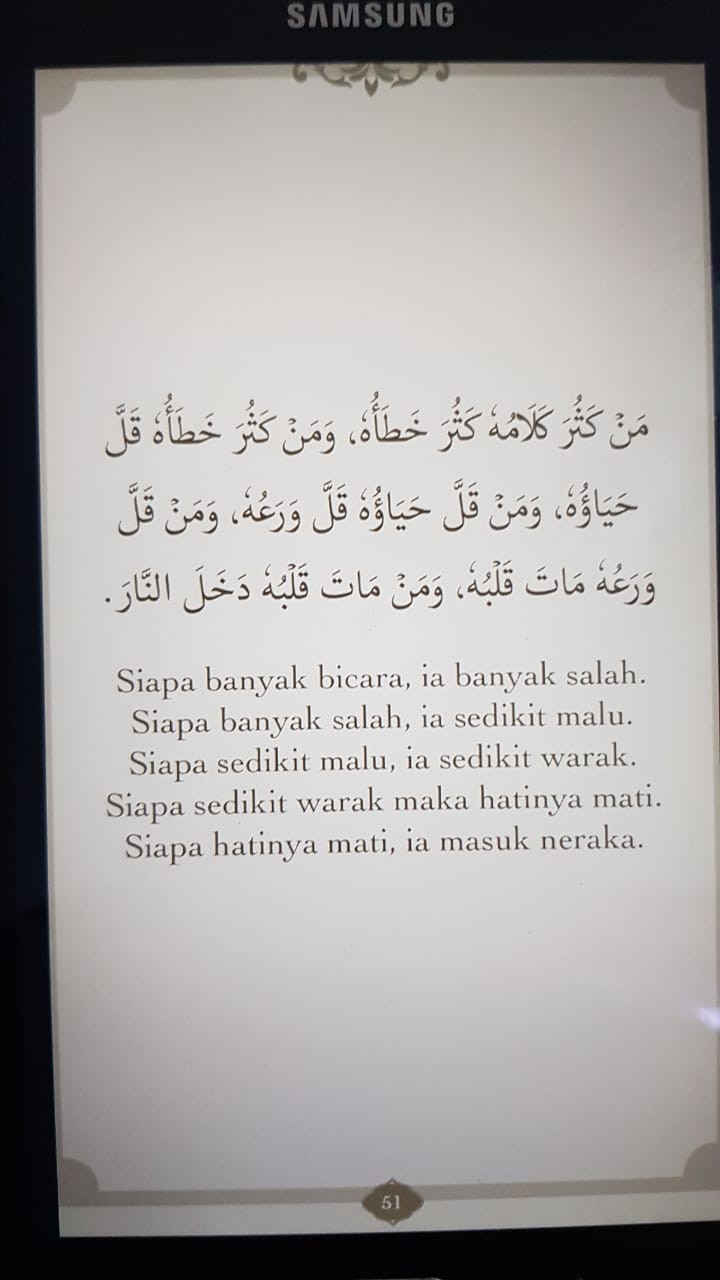 SAMSUNG
مَنْ كَثُرَ كَلَامُهُ كَثُرَ خَطَأُهُ، وَمَنْ كَثُرَ خَطَأُهُ قَلَّ
حَيَاؤُهُ، وَمَنْ قَلَّ حَيَاؤُهُ قَلَّ وَرَعُهُ، وَمَنْ قَلَّ
وَرَعُهُ مَاتَ قَلْبُهُ، وَمَنْ مَاتَ قَلْبُهُ دَخَلَ النَّارَ.
Siapa banyak bicara, ia banyak salah.
Siapa banyak salah, ia sedikit malu.
Siapa sedikit malu, ia sedikit warak.
Siapa sedikit warak maka hatinya mati.
Siapa hatinya mati, ia masuk neraka.
51